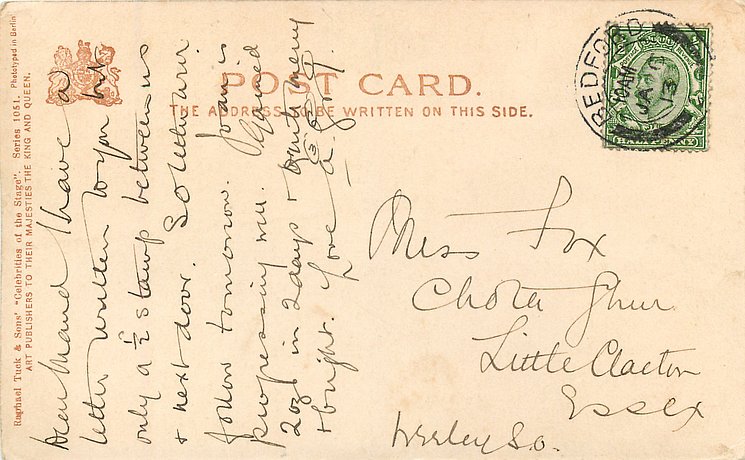 POST CARD.
THE ADDRESS TO BE WRITTEN ON THIS SIDE.
Raphael Tuck & Sons' "Celebrities of the Stage". Series 1051. Phototyped in Berlin
ART PUBLISHERS TO THEIR MAJESTIES THE KING AND QUEEN.
BEDFORD
10 AM
JA
13
Dear Maud I have a
letter written to you but
only a ½ stamp between us
& next door. So letter will
follow tomorrow. Joan is
progressing well. Gained
2ozs in 2 days &
& bright. Love
Miss Fox
Chota Ghur
Little Clacton
Essex
Weeley S.O.